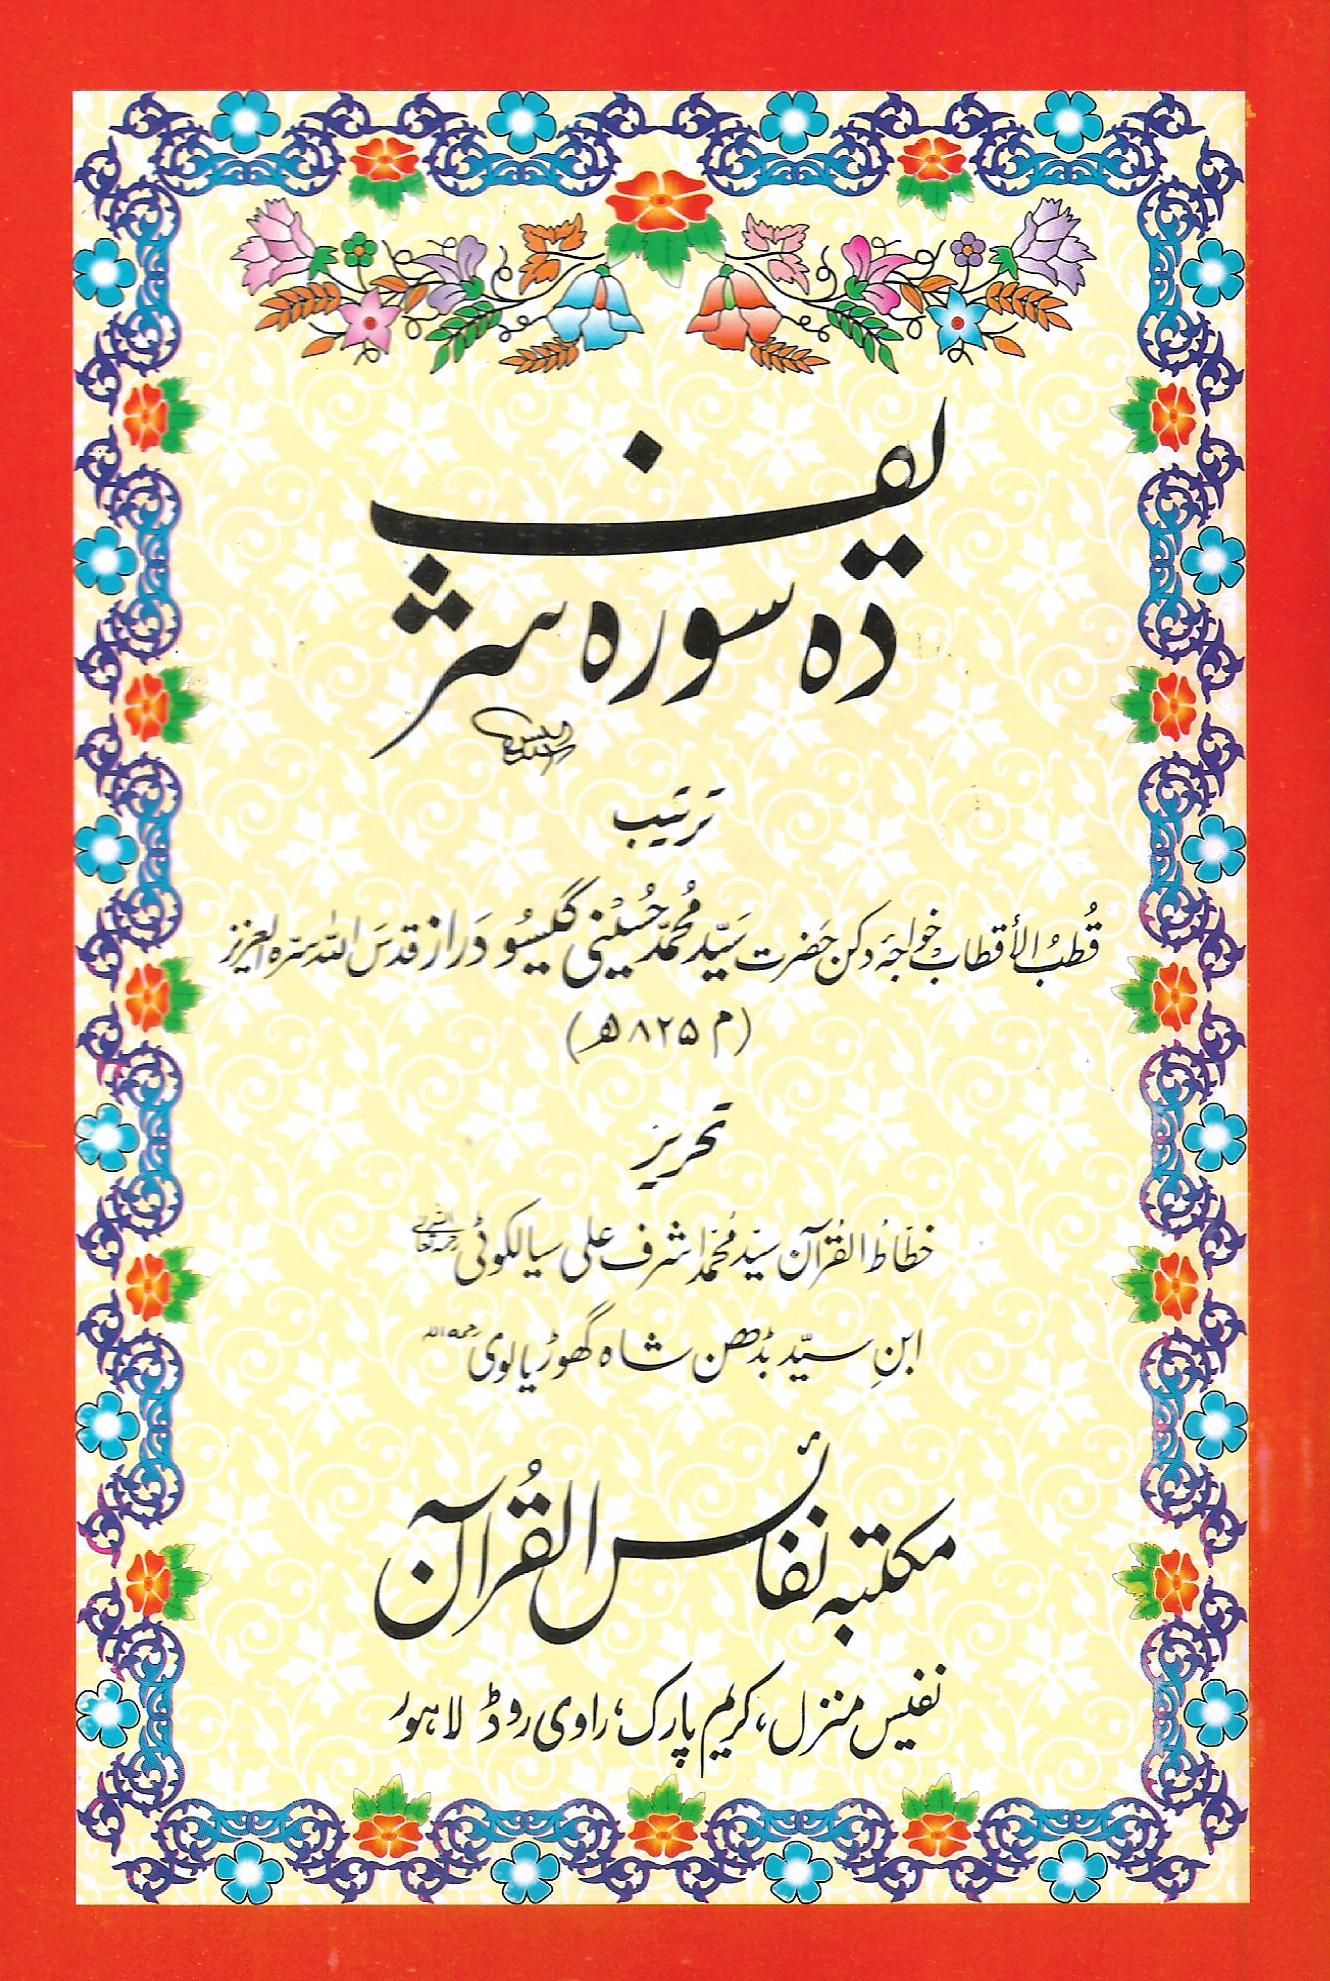 دہ سورہ شریف
ترتیب
قُطبُ الأقطاب خواجۂ دکن حَضرت سَیّد مُحمّد حُسینی گیسُو دَراز قدسَ اللہ سرّہ العزیز
(م ۸۲۵ھ)
تحریر
خطّاطُ القُرآن سیّد مُحمّد اشرف علی سیالکوٹی رحمہ اللہ تعالیٰ
ابنِ سیّد بڈھن شاہ گھوڑیالوی رحمہ اللہ
مکتبہ نفائس القُرآن
نفیس منزل، کریم پارک، راوی روڈ لاہور